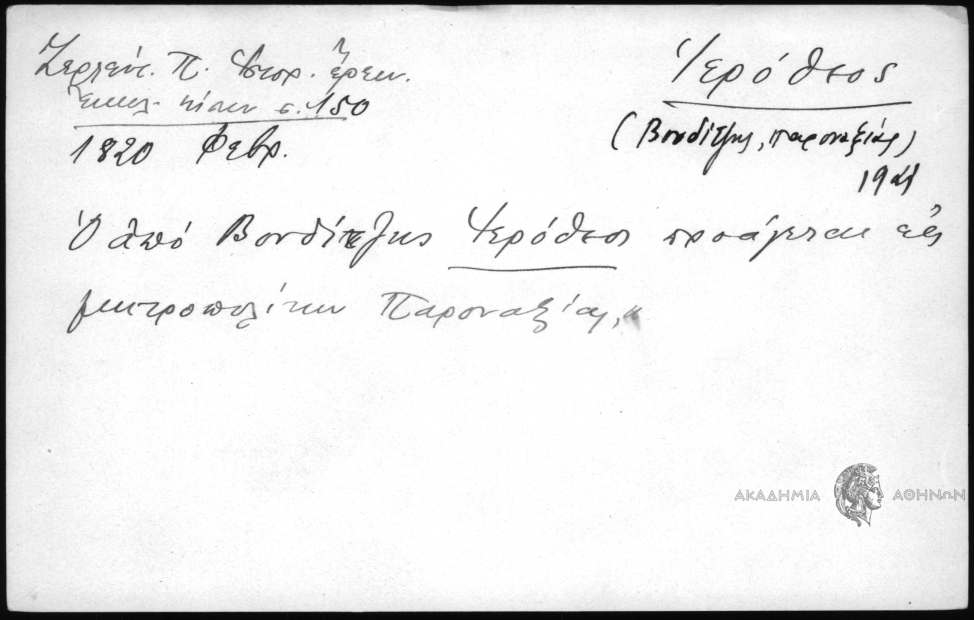 Ζερλέντ. Π. Ἱστορ. Ἔρευν.
Ἐκκλ. Νήσων σ. 150
1820 Φεβρ.
Ἱερόθεος
(Βονδίτζης, Παροναξίας)
Ὁ ἀπό Βονδίτζης Ἱερόθεος προάγεται εἰς
μητροπολίτην Παροναξίας,,
ΑΚΑΔΗΜΙΑ ΑΘΗΝΩΝ